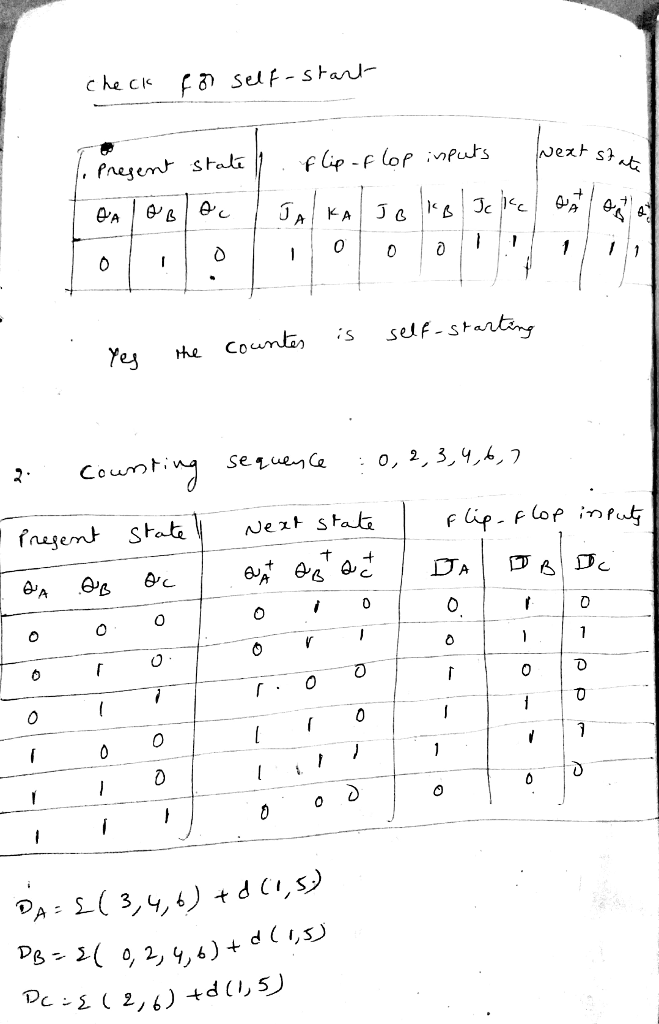 check for self-start
Present state flip-flop inputs Next state
QA QB QC JA KA JB KB JC KC QA+ QB+ Q
0 1 0 1 0 0 0 1 1 1 1 1
Yes the counter is self-starting
2. Counting sequence : 0, 2, 3, 4, 6, 7
Present State Next state flip-flop inputs
QA QB QC QA+ QB+ QC+ DA DB DC
0 0 0 0 1 0 0 1 0
0 1 0 0 1 1 0 1 1
0 1 1 1 0 0 1 0 0
1 0 0 1 1 0 1 1 0
1 1 0 1 1 1 1 1 1
1 1 1 0 0 0 0 0 0
DA = Σ( 3, 4, 6) + d (1, 5)
DB = Σ( 0, 2, 4, 6) + d (1, 5)
DC = Σ ( 2, 6) + d (1, 5)